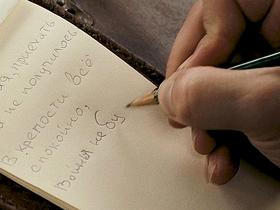 приехать
не получилось
В крепости всё
спокойно,
Война не бу